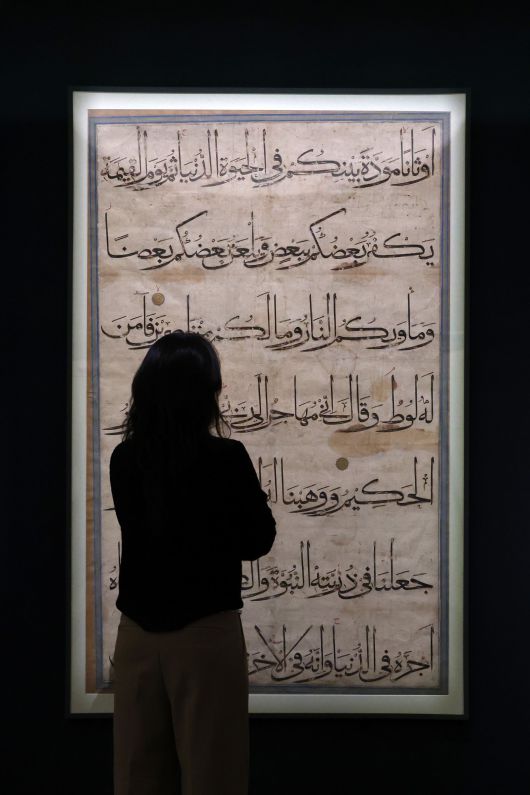 أَوْثَانًا مَوَدَّةَ بَيْنِكُمْ فِي الْحَيٰوةِ الدُّنْيَا ثُمَّ يَوْمَ الْقِيٰمَةِ
يَكْفُرُ بَعْضُكُمْ بِبَعْضٍ وَيَلْعَنُ بَعْضُكُمْ بَعْضًا
وَمَأْوٰيكُمُ النَّارُ وَمَا لَكُمْ نَاصِرِينَ فَآمَنَ
لَهُ لُوطٌ وَقَالَ إِنِّي مُهَاجِرٌ إِلَى
الْحَكِيمُ وَوَهَبْنَا
جَعَلْنَا فِي ذُرِّيَّتِهِ النُّبُوَّةَ
أَجْرَهُ فِي الدُّنْيَا وَإِنَّهُ فِي الْآخِرَةِ